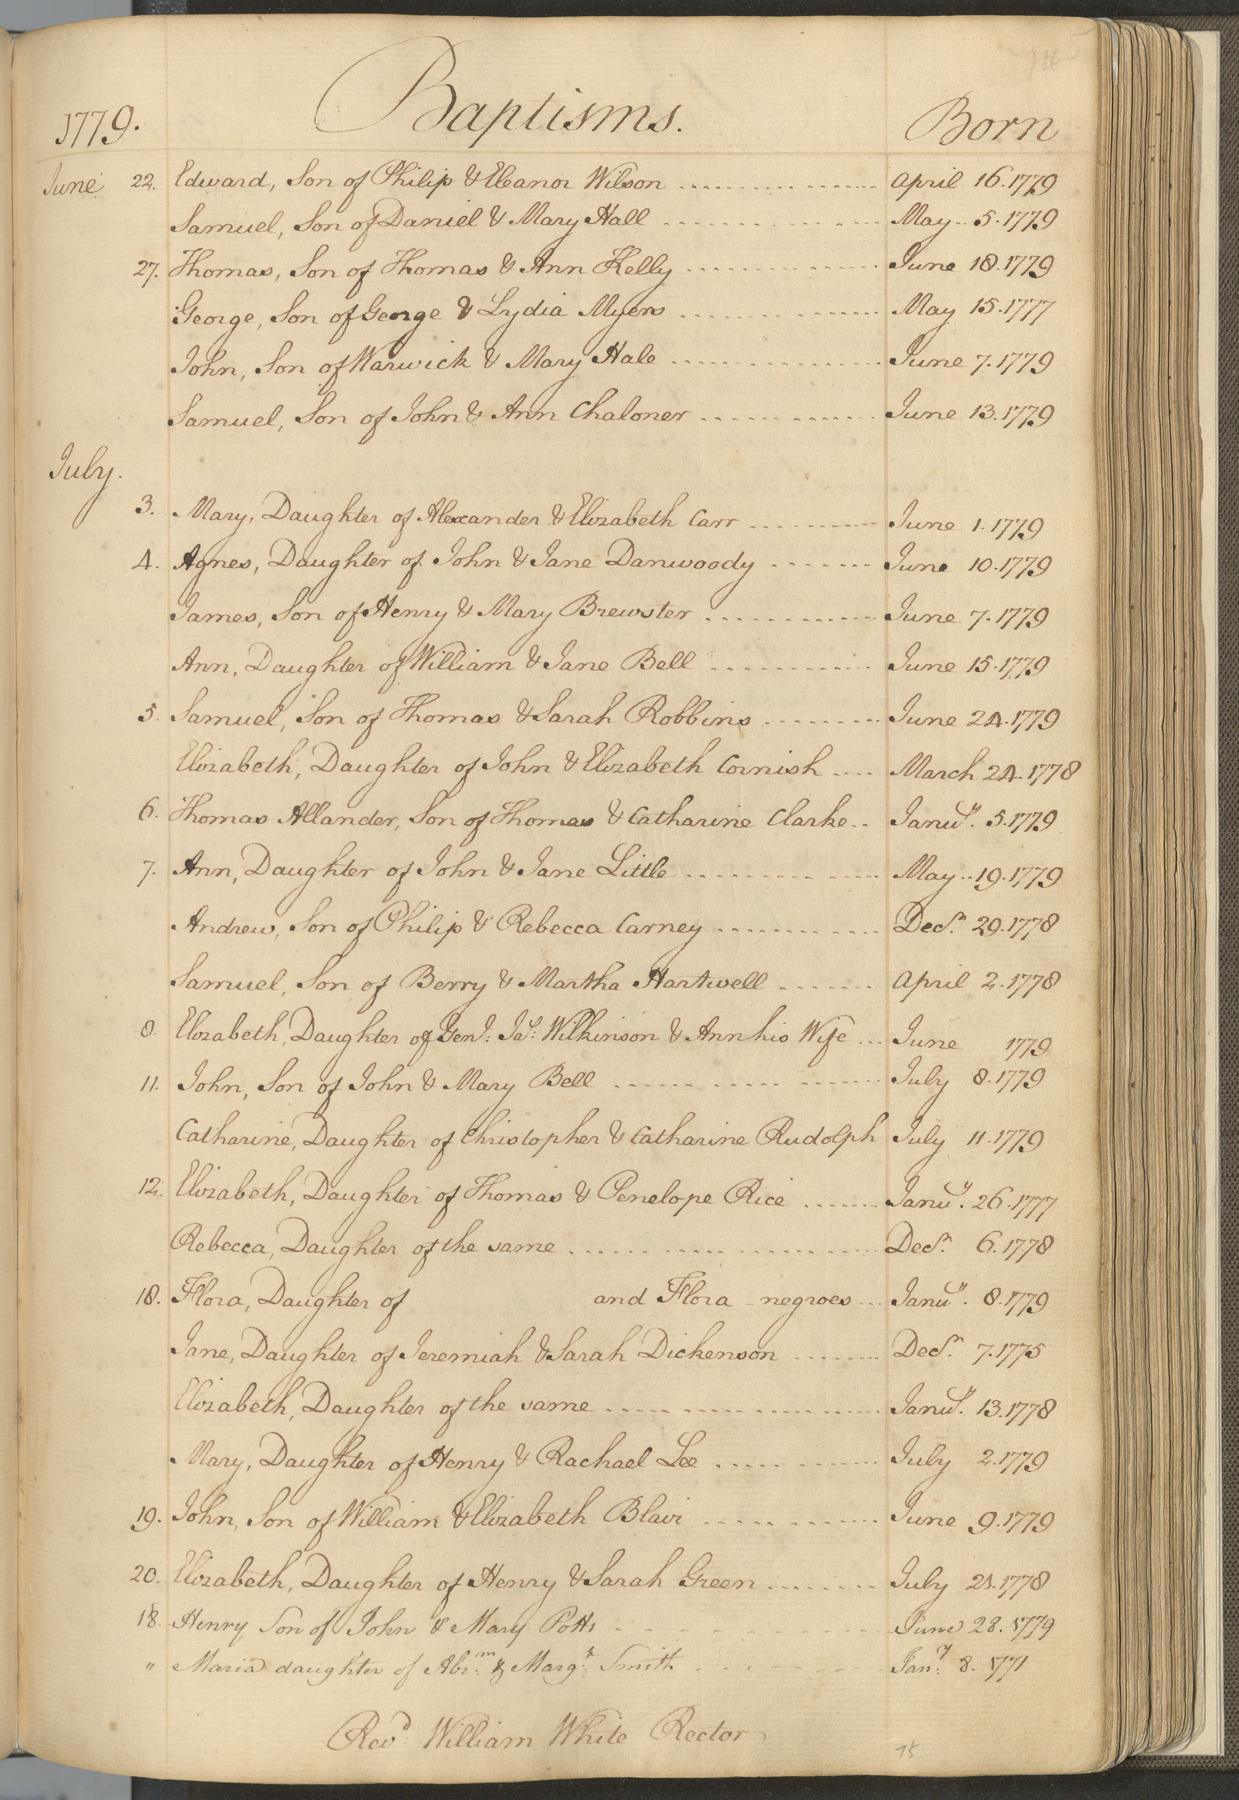 1779. Baptisms. Born
June 22. Edward, Son of Philip & Eleanor Wilson .................. April 16.1779
Samuel, Son of Daniel & Mary Hall .................. May .. 5.1779
27. Thomas, Son of Thomas & Ann Kelly .................. June 18.1779
George, Son of George & Lydia Myers .................. May 15.1777
John, Son of Warwick & Mary Hale .................. June 7.1779
Samuel, Son of John & Ann Chaloner .................. June 13.1779
July.
3. Mary, Daughter of Alexander & Elizabeth Carr .......... June 1.1779
4. Agnes, Daughter of John & Jane Danwoody ....... June 10.1779
James, Son of Henry & Mary Brewster ............ June 7.1779
Ann, Daughter of William & Jane Bell ............ June 15.1779
5. Samuel, Son of Thomas & Sarah Robbins ........ June 24.1779
Elizabeth, Daughter of John & Elizabeth Cornish .... March 24.1778
6. Thomas Allander, Son of Thomas & Catharine Clarke .. Janu.y 5.1779
7. Ann, Daughter of John & Jane Little .............. May .. 19.1779
Andrew, Son of Philip & Rebecca Carney ............ Dec.r 29.1778
Samuel, Son of Berry & Martha Hartwell ...... April 2.1778
8. Elizabeth, Daughter of Gen.l Ja.s Wilkinson & Ann his Wife ... June 1779
11. John, Son of John & Mary Bell .................. July 8.1779
Catharine, Daughter of Christopher & Catharine Rudolph July 11.1779
12. Elizabeth, Daughter of Thomas & Penelope Rice ....... Janu.y 26.1777
Rebecca, Daughter of the same ...................... Dec.r 6.1778
18. Flora, Daughter of and Flora - negroes ... Janu.y 8.1779
Jane, Daughter of Jeremiah & Sarah Dickenson ....... Dec.r 7.1775
Elizabeth, Daughter of the same .................... Janu.y 13.1778
Mary, Daughter of Henry & Rachael Lee ............ July 2.1779
19. John, Son of William & Elizabeth Blair ............ June 9.1779
20. Elizabeth, Daughter of Henry & Sarah Green ........ July 1778
18. Henry Son of John & Mary Potts - - - - - - - June 28. 1779
" Maria daughter of Abr.m & Marg.t Smith - - - - Jan.y 8. 1771
Rev.d William White Rector
75